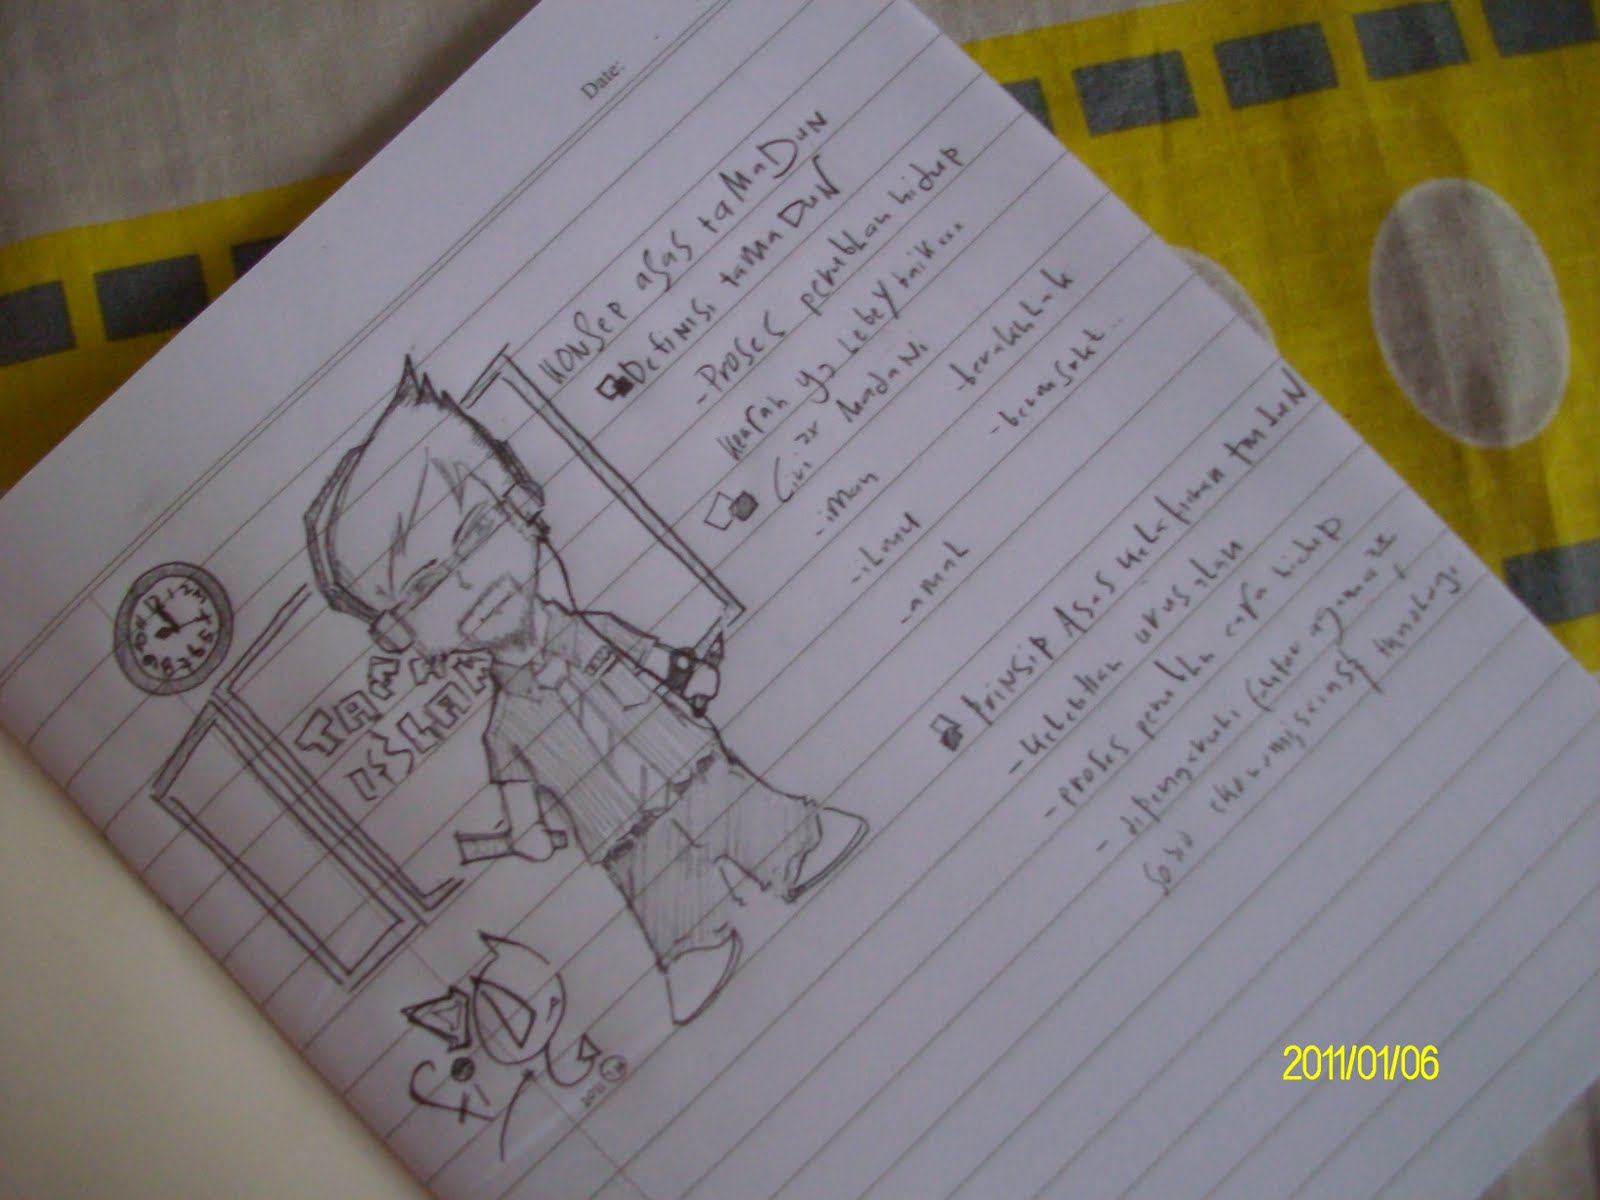 Date:
KONSEP asas taMaDuN
DefiNiSi taMaDuN
- Proses perubhan hidup
Kearah yg lebey baik...
Ciri 2x MadaNi
- iMan
- berakhlak
- ilmu
- bermsrkt...
- amal
PriNSiP Asas Kelahiran tmduN
- Kelebihan urus alam
- proses perubhn cara hidup
- dipengaruhi faktor agama 22
soso ekonomi, sains & tknologi
TAMA
ISSLAM
2011
2011/01/06